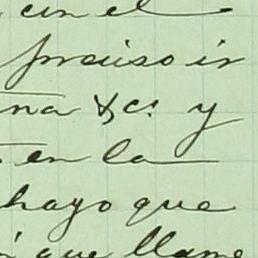 con el
preciso ir
na &c. y
en la
hayo que
que llame